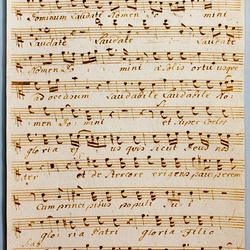 Dominum Laudate Nomen Do mini
Laudate Laudate Laudate
Nomen Do mini a Solis ortu usque
ad occasum Laudabile Laudabile No:
men Do mini et Super Coelos
gloria ejus quis sicut Deus nos
ter et de stercore erigens pauperem
Cum principibus populi Su i
glo: ria Patri gloria Filio